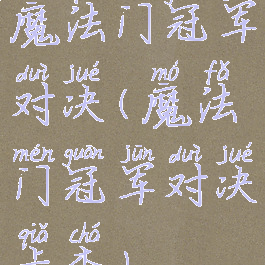 魔法门冠军
duì jué mó fǎ
对决(魔法
mén guān jūn duì jué
门冠军对决
qiǎ chó
卡